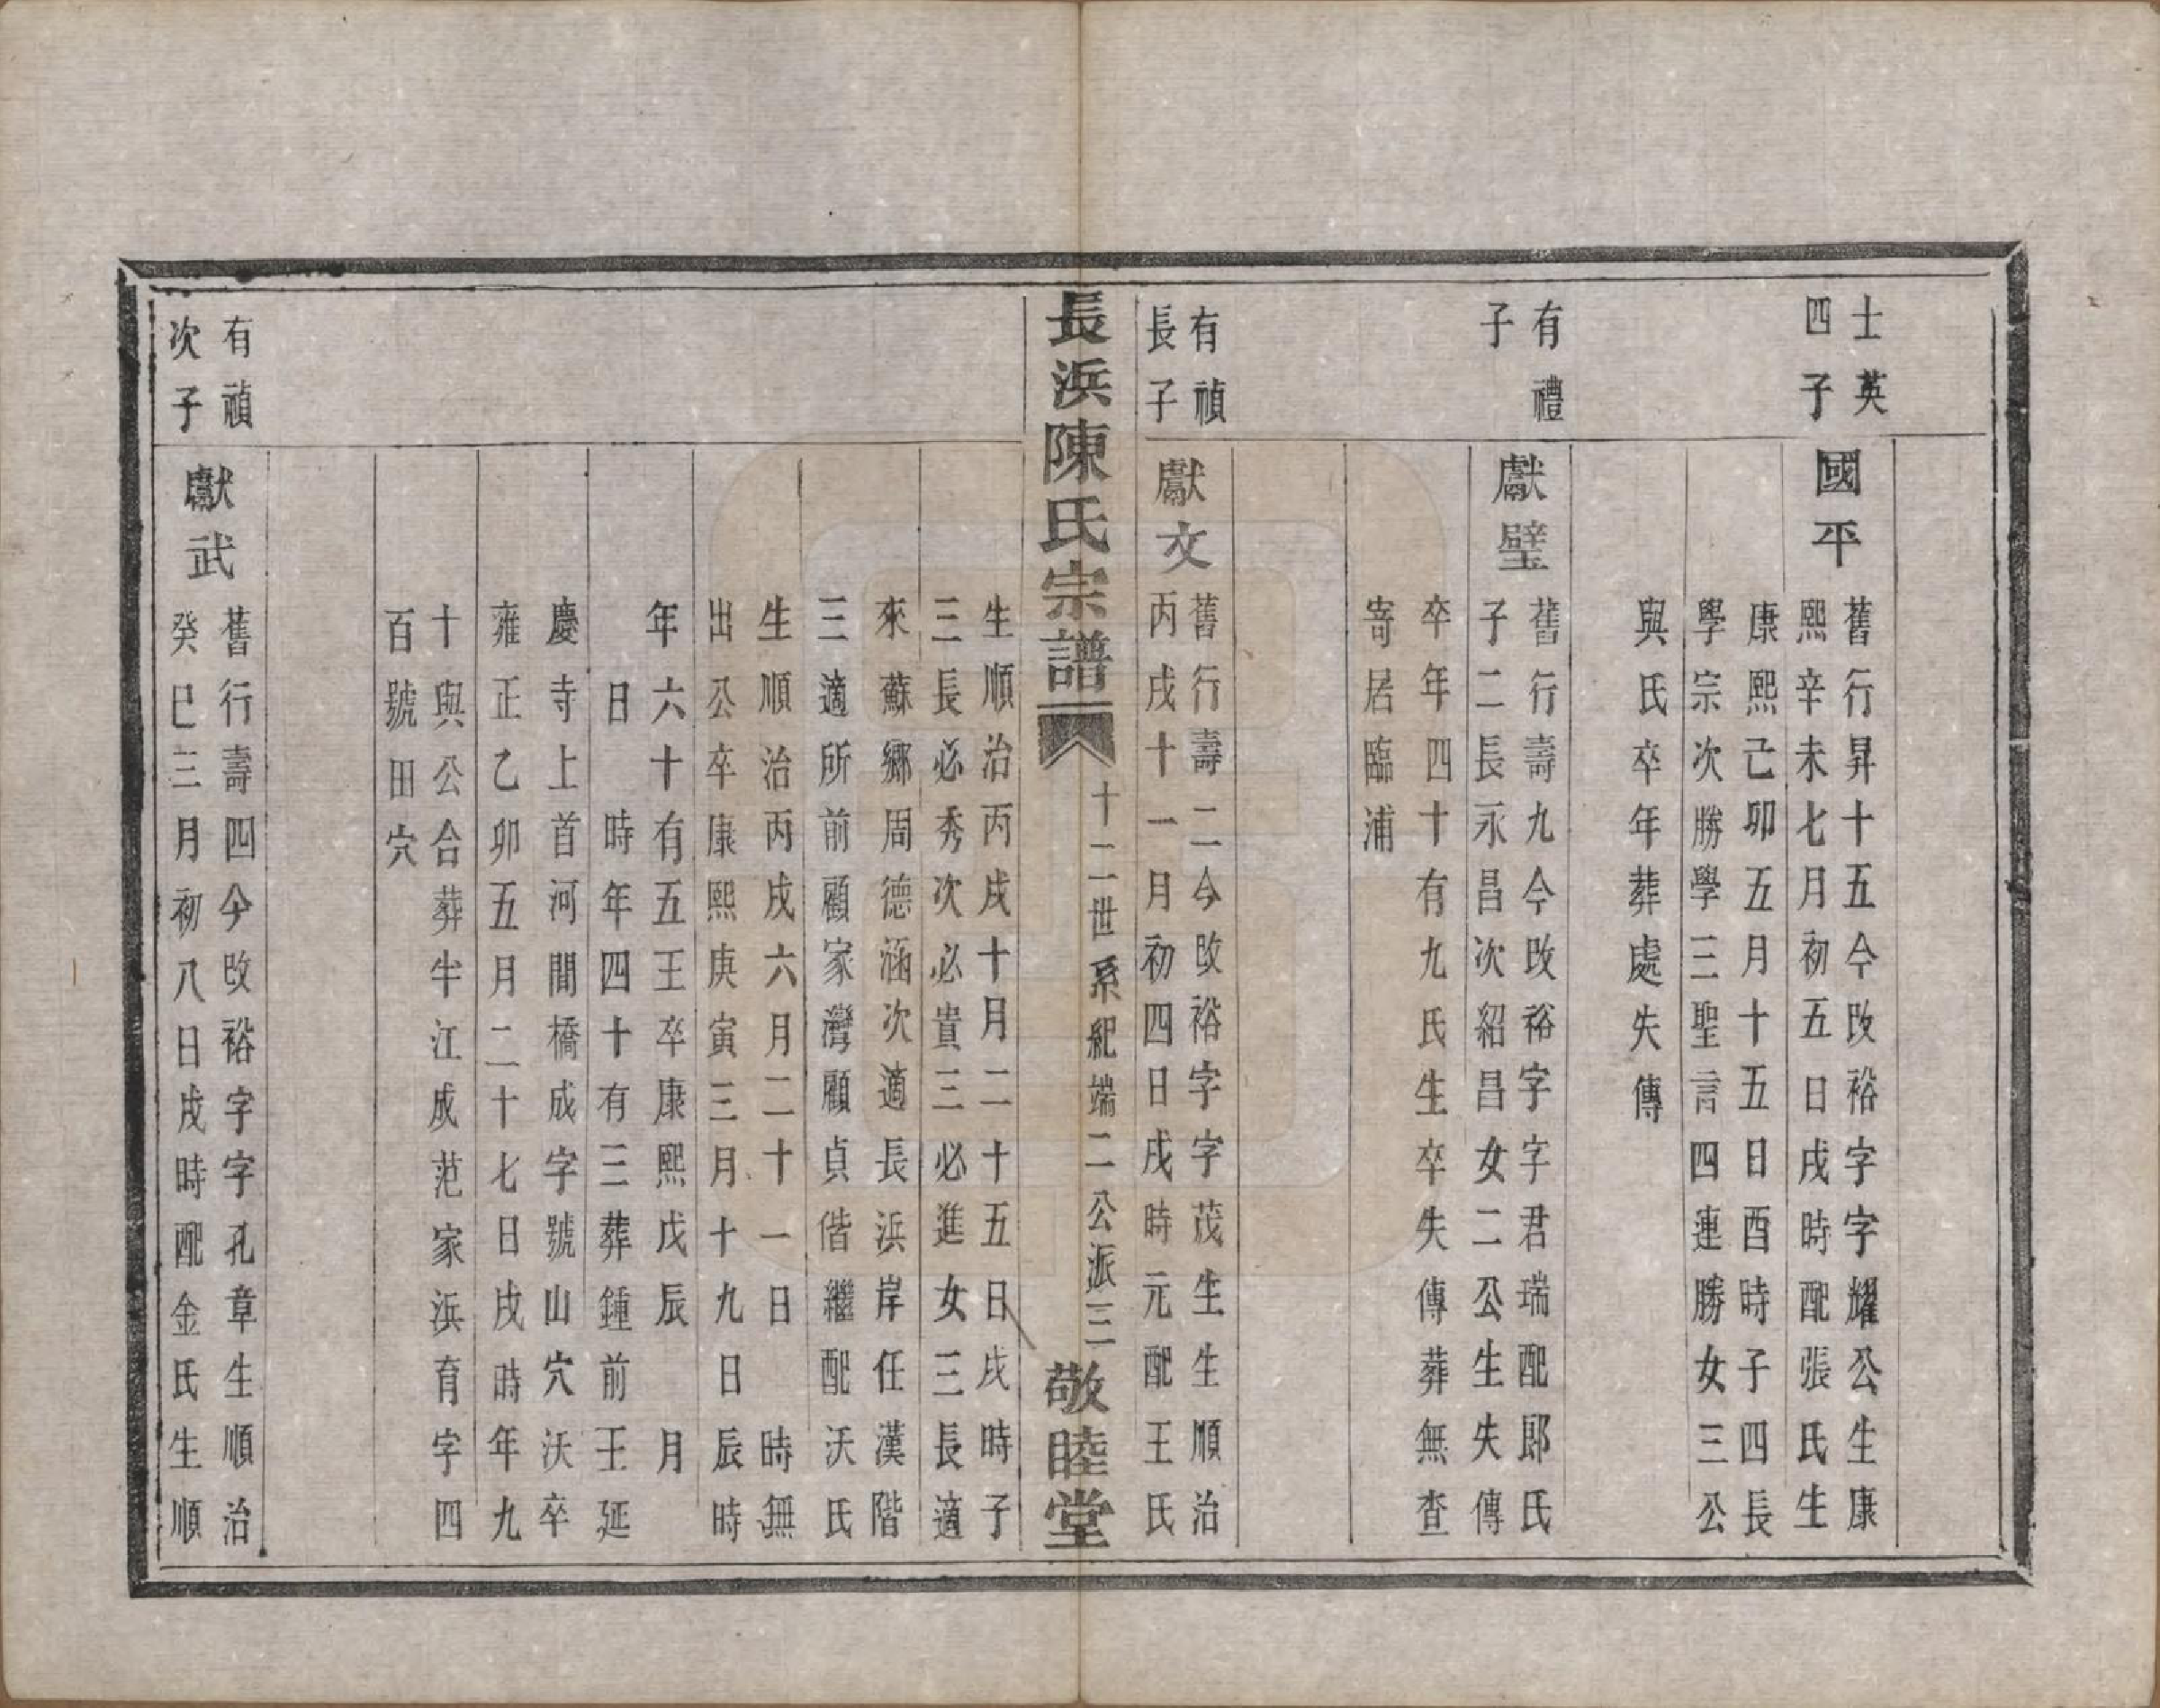 士英
四子
國平
舊行昇十五今改裕字字耀公生康
熙辛未七月初五日戌時配張氏生
康熙己卯五月十五日酉時子四長
學宗次勝學三聖言四連勝女三公
與氏卒年葬處失傳
有禮
子
獻璧
舊行壽九今改裕字字君瑞配郎氏
子二長永昌次紹昌女二公生失傳
卒年四十有九氏生卒失傳葬無查
寄居臨浦
有禎
長子
獻文
舊行壽二今改裕字字茂生生順治
丙戌十一月初四日戌時元配王氏
長浜陳氏宗譜
十二世系紀端二公派三
敬睦堂
生順治丙戌十月二十五日戌時子
三長必秀次必貴三必進女三長適
來蘇鄉周德涵次適長浜岸任漢階
三適所前顧家灣顧貞偕繼配沃氏
生順治丙戌六月二十一日 時無
出公卒康熙庚寅三月十九日辰時
年六十有五王卒康熙戊辰 月
日 時年四十有三葬鍾前王延
慶寺上首河間橋成字號山穴沃卒
雍正乙卯五月二十七日戌時年九
十與公合葬牛江成范家浜育字四
百號田穴
有禎
次子
獻武
舊行壽四今改裕字字孔章生順治
癸巳三月初八日戌時配金氏生順